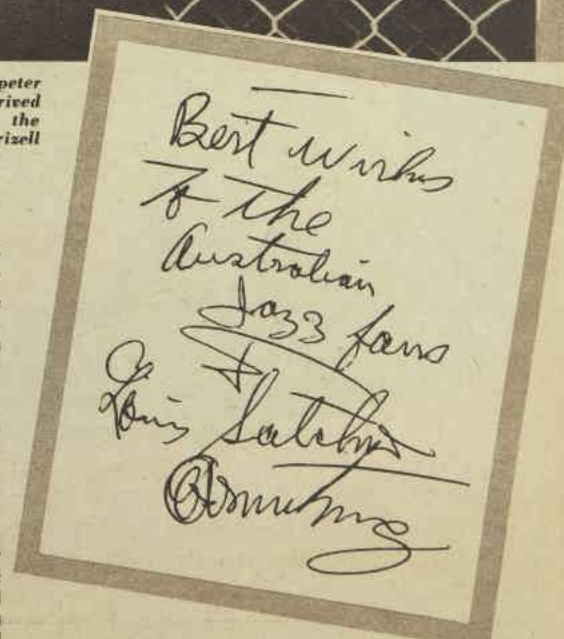 peter
rived
the
rizell
Best Wishes
To The
Australian
Jazz fans
Louis Satchmo
Armstrong